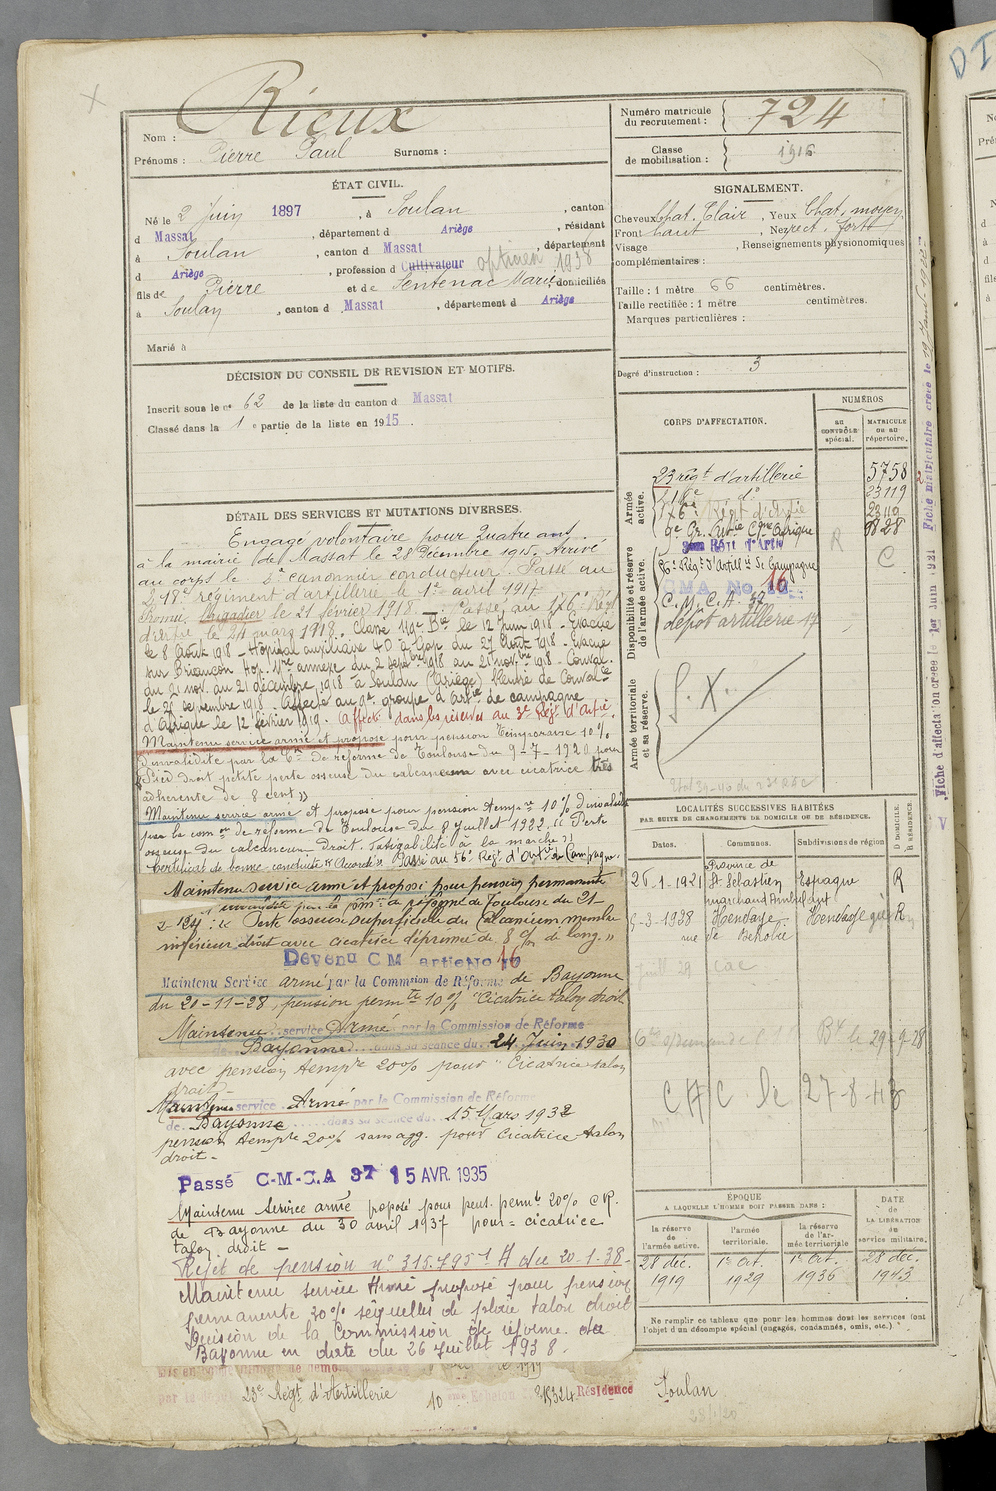 Rieux
Nom :
Prénoms : Pierre Paul Surnoms :
Numéro matricule du recrutement : 724
Classe de mobilisation : 1916
ÉTAT CIVIL.
Né le 2 Juin 1897, à Soulan, canton
d Massat, département d Ariège, résidant
à Soulan, canton d Massat, département
d Ariège, profession d Cultivateur opticien 1938
fils de Pierre et de Sentenac Marie, domiciliés
à Soulan, canton d Massat, département d Ariège
Marié à
SIGNALEMENT.
Cheveux Chat. Clair, Yeux Chat. moyen
Front haut, Nez rect. fort
Visage, Renseignements physionomiques
complémentaires :
Taille : 1 mètre 66 centimètres.
Taille rectifiée : 1 mètre centimètres.
Marques particulières :
Degré d'instruction : 3
DÉCISION DU CONSEIL DE REVISION ET MOTIFS.
Inscrit sous le n° 62 de la liste du canton d Massat
Classé dans la 1 e partie de la liste en 1915
DÉTAIL DES SERVICES ET MUTATIONS DIVERSES.
Engagé volontaire pour quatre ans
à la mairie de Massat le 28 Décembre 1915. Arrivé
au corps le 2e canonnier conducteur. Passé au
218e régiment d'artillerie le 1er avril 1917
Promu Brigadier le 21 février 1918. Passé au 176e Régt
d'artie le 24 mars 1918. Classé 119e Bie le 12 Juin 1918. Evacué
le 8 Août 1918 - Hôpital auxiliaire 40 à Gap du 27 Août 1918 - Evacué
sur Briançon Hop. annexe du 2 septbre 1918 au 21 novbre 1918 - Conval.
du 21 nov. au 21 décembre 1918 à Soulan (Ariège) Rentré de Convalce
le 1918. Affecté au 9e groupe d'Artie de campagne
d'Afrique le 12 février 1919. Affecté dans les réserves au 3e Régt d'artie.
Maintenu service armé et proposé pour pension temporaire 10%
d'invalidité par la Con de réforme de Toulouse du 9-7-1920 pour
Pied droit petite perte osseuse du calcaneum avec cicatrice très
adhérente de 8 cent »
Maintenu service armé et proposé pour pension tempre 10% d'invalidité
par la com on de réforme de Toulouse du 8 juillet 1922 « Perte
osseuse du calcaneum droit. Fatigabilité à la marche »
Certificat de bonne conduite "Accordé". Passé au 56e Régt d'Artie de Campagne.
Maintenu service armé et proposé pour pension permanente
invalidité par la Comon de réforme de Toulouse du 21
2 1924 : « Perte osseuse superficielle du Calcanéum membre
inférieur droit avec cicatrice déprimée de 8 c/m de long. »
Devenu C M artie No 16
Maintenu Service armé par la Commsion de Réforme de Bayonne
du 20-11-28, pension permte 10% "Cicatrice talon droit
Maintenu service Armé par la Commission de Réforme
de Bayonne dans sa séance du 24 Juin 1930
avec pension tempre 20% pour "Cicatrice talon
droit -
Maintenu service Armé par la Commission de Réforme
de Bayonne dans sa séance du 15 Mars 1932
pension tempre 20% sans agg. pour Cicatrice talon
droit -
Passé C-M-C.A 37 15 AVR. 1935
Maintenu Service armé proposé pour pens. permte 20% C.R.
de Bayonne du 30 avril 1937 pour = cicatrice
talon droit -
Rejet de pension n° 315.795 H du 20-1-38-
Maintenu service Armé proposé pour pension
permanente 20% séquelles de plaie talon droit
Décision de la Commission de réforme de
Bayonne en date du 26 Juillet 1938.
23e Régt d'Artillerie 10 Résidence Soulan
CORPS D'AFFECTATION.
NUMÉROS
AU CONTRÔLE spécial.
MATRICULE OU AU répertoire.
Armée active.
23 régt d'artillerie 5758
d° 23119
176e Régt d'Artie 23119
9e Gr. Artie Cgne Afrique 9828
Disponibilité et réserve de l'armée active.
R
C
Régt d'Artillie de Campagne
CMA No 16
C.M.C.A. 37
dépôt artillerie 17
Armée territoriale et sa réserve.
S.X.
Fiche d'affectation créée le 1er Juin 1921
Fiche matriculaire créée le
LOCALITÉS SUCCESSIVES HABITÉES
PAR SUITE DE CHANGEMENTS DE DOMICILE OU DE RÉSIDENCE.
Dates. Communes. Subdivisions de région
D DOMICILE.
R RÉSIDENCE.
25-1-1921 Province de St Sébastien Espagne R
marchand ambulant
5-3-1928 Hendaye Hendaye R
rue de Béhobie
29-9-28
C A C le 27-8-43
ÉPOQUE
A LAQUELLE L'HOMME DOIT PASSER DANS :
la réserve de l'armée active.
l'armée territoriale.
la réserve de l'armée territoriale
DATE de LA LIBÉRATION du service militaire.
28 déc. 1919
1er Oct. 1929
1er Oct. 1936
28 déc. 1943
Ne remplir ce tableau que pour les hommes dont les services font
l'objet d'un décompte spécial (engagés, condamnés, omis, etc.).